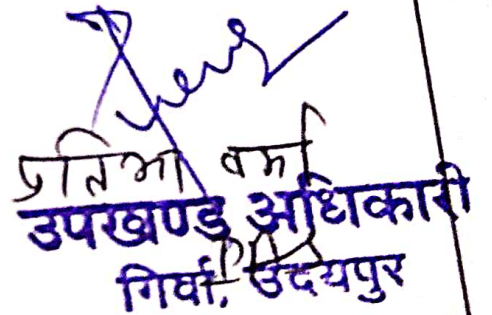 प्रतिभा वर्मा
उपखण्ड अधिकारी
गिर्वा, उदयपुर